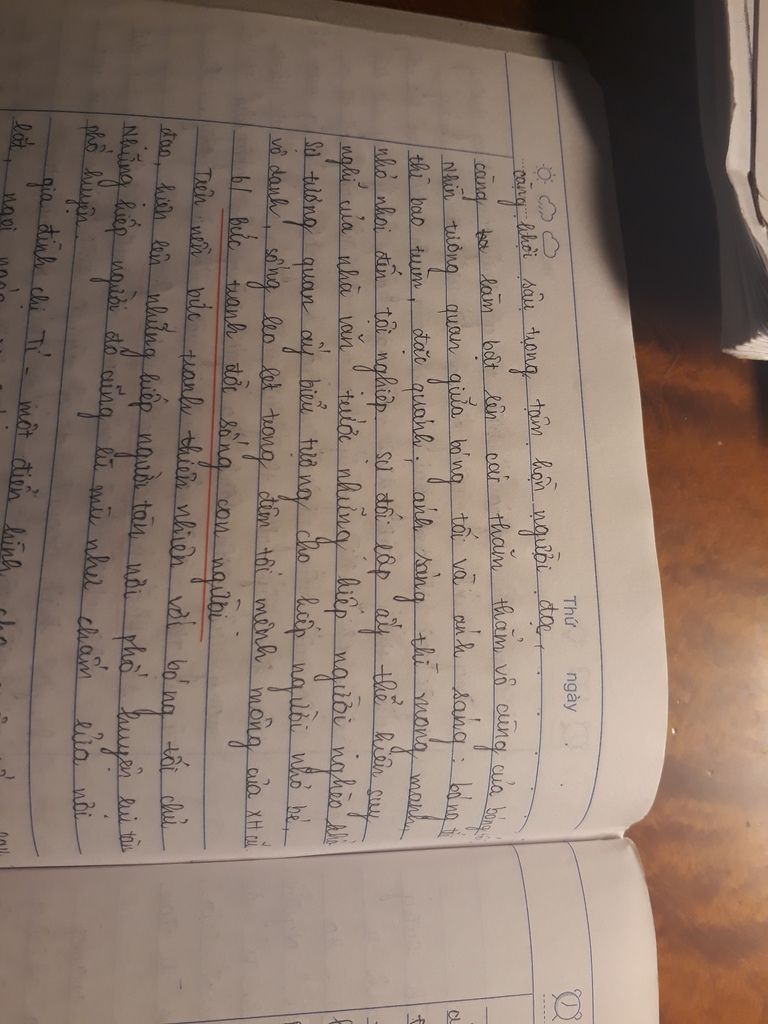 Thứ ngày
càng khơi sâu trong tâm hồn người đọc,
càng làm bật lên cái thăm thẳm vô cùng của bóng tối
Nhìn tương quan giữa bóng tối và ánh sáng: bóng tối
thì bao trùm, đặc quánh; ánh sáng thì mong manh,
nhỏ nhoi đến tội nghiệp sự đối lập ấy thể hiện suy
nghĩ của nhà văn trước những kiếp người nghèo khổ
Sự tương quan ấy biểu tượng cho kiếp người nhỏ bé,
vô danh, sống leo lét trong đêm tối mênh mông của XH cũ
b/ Bức tranh đời sống con người.
Trên nền bức tranh thiên nhiên với bóng tối chủ
đạo, hiện lên những kiếp người tàn nơi phố huyện lụi tàn
Những kiếp người đó cũng lù mù như chấm lửa nơi
phố huyện.
gia đình chị Tí - một điển hình cho